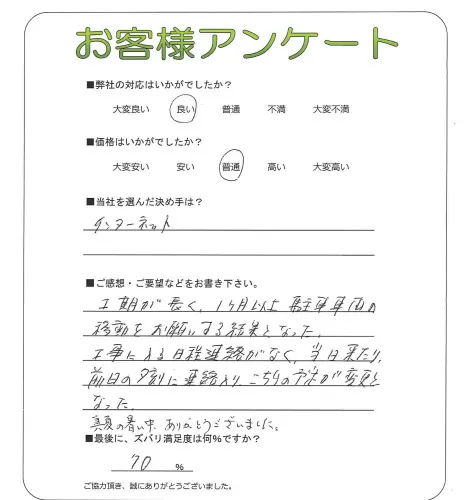 お客様アンケート
■弊社の対応はいかがでしたか？
大変良い 良い 普通 不満 大変不満
■価格はいかがでしたか？
大変安い 安い 普通 高い 大変高い
■当社を選んだ決め手は？
インターネット
■ご感想・ご要望などをお書き下さい。
工期が長く、1ヶ月以上 駐車車両の
移動をお願いする結果となった。
工事に入る日程連絡がなく、当日来たり、
前日の夕刻に連絡入り、こちらの予定が変更と
なった。
真夏の暑い中、ありがとうございました。
■最後に、ズバリ満足度は何%ですか？
70 %
ご協力頂き、誠にありがとうございました。